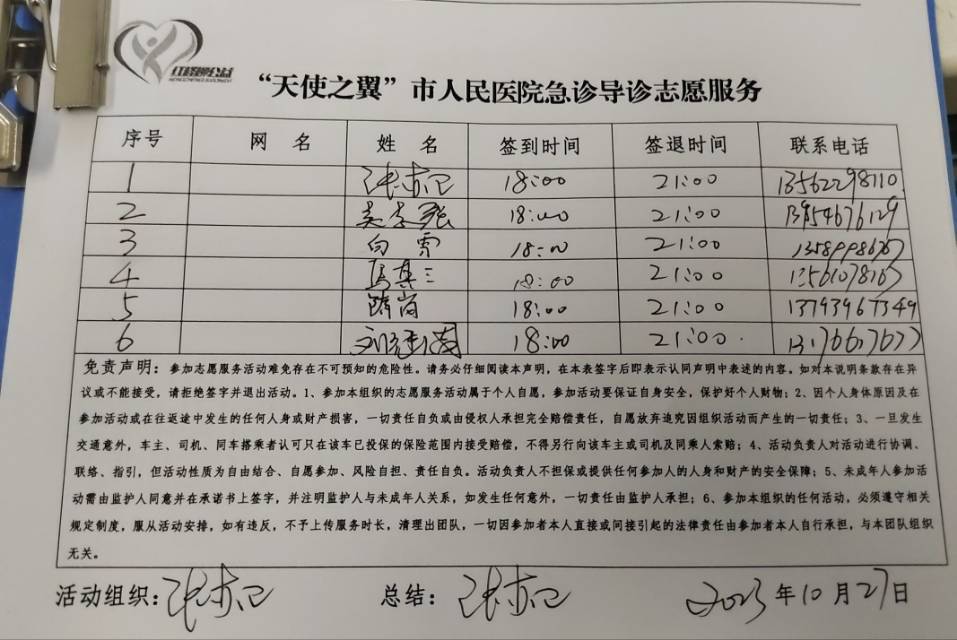 “天使之翼”市人民医院急诊导诊志愿服务
序号 网 名 姓 名 签到时间 签退时间 联系电话
1 18:00 21:00 13562298110
2 18:00 21:00 13954676129
3 白雪 18:00 21:00
4 18:00 21:00
5 18:00 21:00 13793967349
6 18:00 21:00
免责声明：参加志愿服务活动难免存在不可预知的危险性。请务必仔细阅读本声明，在本表签字后即表示认同声明中表述的内容。如对本说明条款存在异
议或不能接受，请拒绝签字并退出活动。1、参加本组织的志愿服务活动属于个人自愿，参加活动要保证自身安全，保护好个人财物；2、因个人身体原因及在
参加活动或在往返途中发生的任何人身或财产损害，一切责任自负或由侵权人承担完全赔偿责任，自愿放弃追究因组织活动而产生的一切责任；3、一旦发生
交通意外，车主、司机、同车搭乘者认可只在该车已投保的保险范围内接受赔偿，不得另行向该车主或司机及同乘人索赔；4、活动负责人对活动进行协调、
联络、指引，但活动性质为自由结合、自愿参加、风险自担、责任自负。活动负责人不担保或提供任何参加人的人身和财产的安全保障；5、未成年人参加活
动需由监护人同意并在承诺书上签字，并注明监护人与未成年人关系，如发生任何意外，一切责任由监护人承担；6、参加本组织的任何活动，必须遵守相关
规定制度，服从活动安排，如有违反，不予上传服务时长，清理出团队，一切因参加者本人直接或间接引起的法律责任由参加者本人自行承担，与本团队组织
无关。
活动组织： 总结： 2023年10月27日